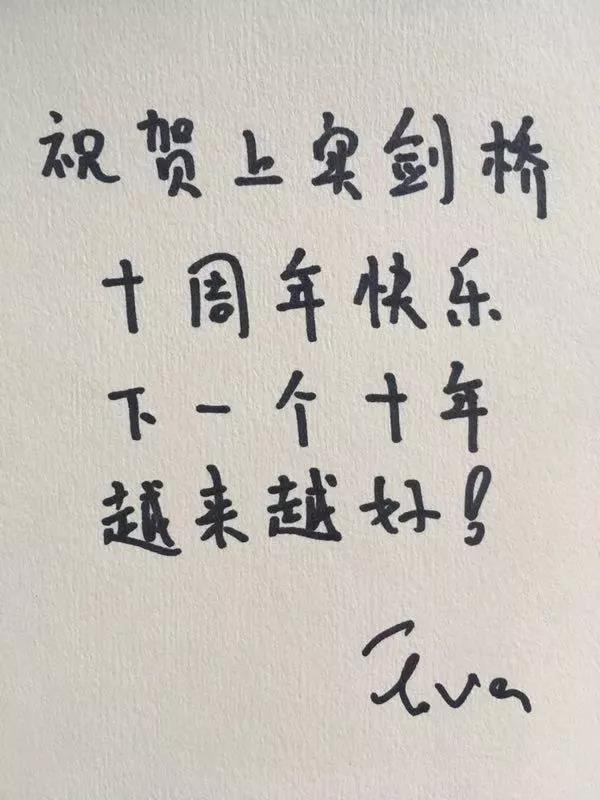 祝贺上实剑桥
十周年快乐
下一个十年
越来越好！
Eva